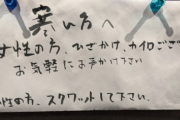 寒い方へ
女性の方、ひざかけ、カイロござ
お気軽にお声かけ下さい
性の方、スクワットして下さい。